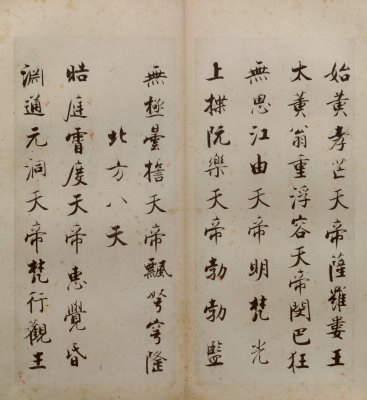 始黃孝芒天帝薩羅婁王
太黃翁重浮容天帝閔巴狂
無思江由天帝明梵光
上揲阮樂天帝勃勃監
無極曇天帝飄穹隆
北方八天
晧庭霄度天帝惠覺昏
淵通元洞天帝梵行觀生